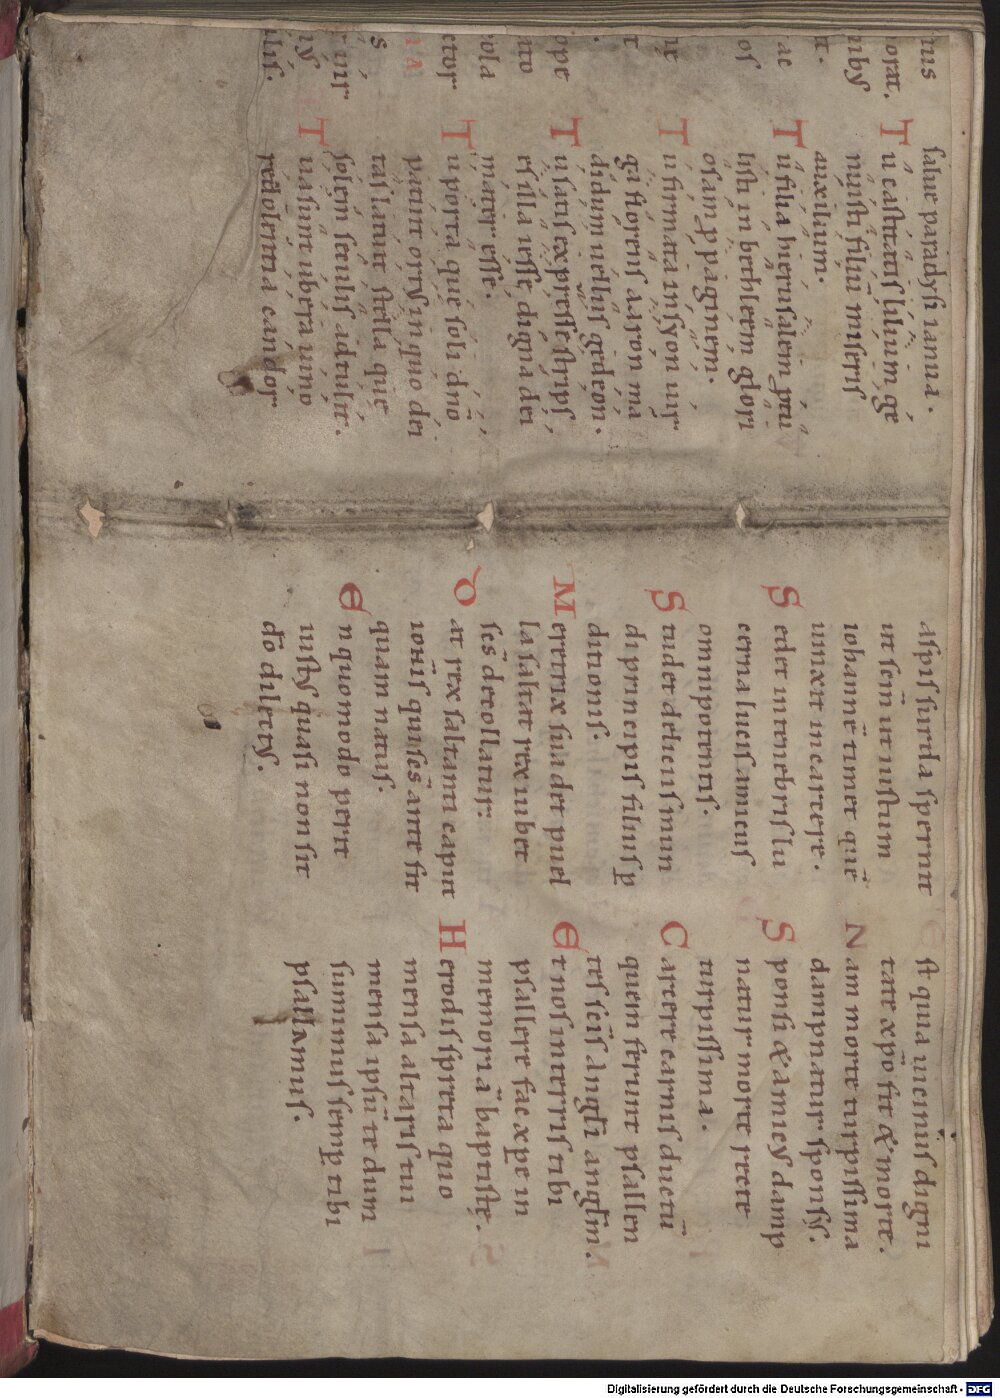 tus
orat.
ubꝰ
t.
ac
os
ie
t
.
ope
ato
ola
ctor
s
nir
ıꝰ
ilis.
salue paradysi ianua.
Tu castitatis lilium ge
nuisti filiū miseris
auxilium.
Tu filia hierusalem ptu
listi in bethleem glori
osam ꝓpagınem.
Tu firmata in syon uir
ga florens aaron ma
didum uellus gedeon.
Tu satis expresse stirps
es illa iesse, digna dei
mater esse.
Tu porta que soli dn̄o
patuit orꝰ in quo dei
tas latuit stella que
solem seculis adtulit.
Tua sunt ubera uino
redolentia candor
aspis surda spernit
ut sem̄ ut iustum
iohannē timet quē
uinxit in carcere.
Sedet in tenebris lu
cerna lucis amicus
omnipotentis.
Studet deliciis mun
di principis filius ꝑ
ditionis.
Meretrix suadet puel
la saltat rex iubet
scs̄ decollatur.
Dat rex saltanti caput
ioh̄is qui scs̄ ante fit
quam natus.
En quomodo perit
iustꝰ quasi non sit
dō dilectꝰ.
Est quia uicinus digni
tate xp̄o fit & morte.
Nam morte turpissima
dampnatur sponsꝰ.
Sponsi & amicꝰ damp
natur morte recte
turpissima.
Carcere carnis ductū
quem ferunt psallen
tes scīs angl̄i angl̄m.
Et nos in terris tibi
psallere fac xpe in
memoriā baptistę.
Herodis spreta quo
mensa altaris tui
mensa ipsū te dum
sumimus semꝑ tibi
psallamus.
Digitalisierung gefördert durch die Deutsche Forschungsgemeinschaft - DFG